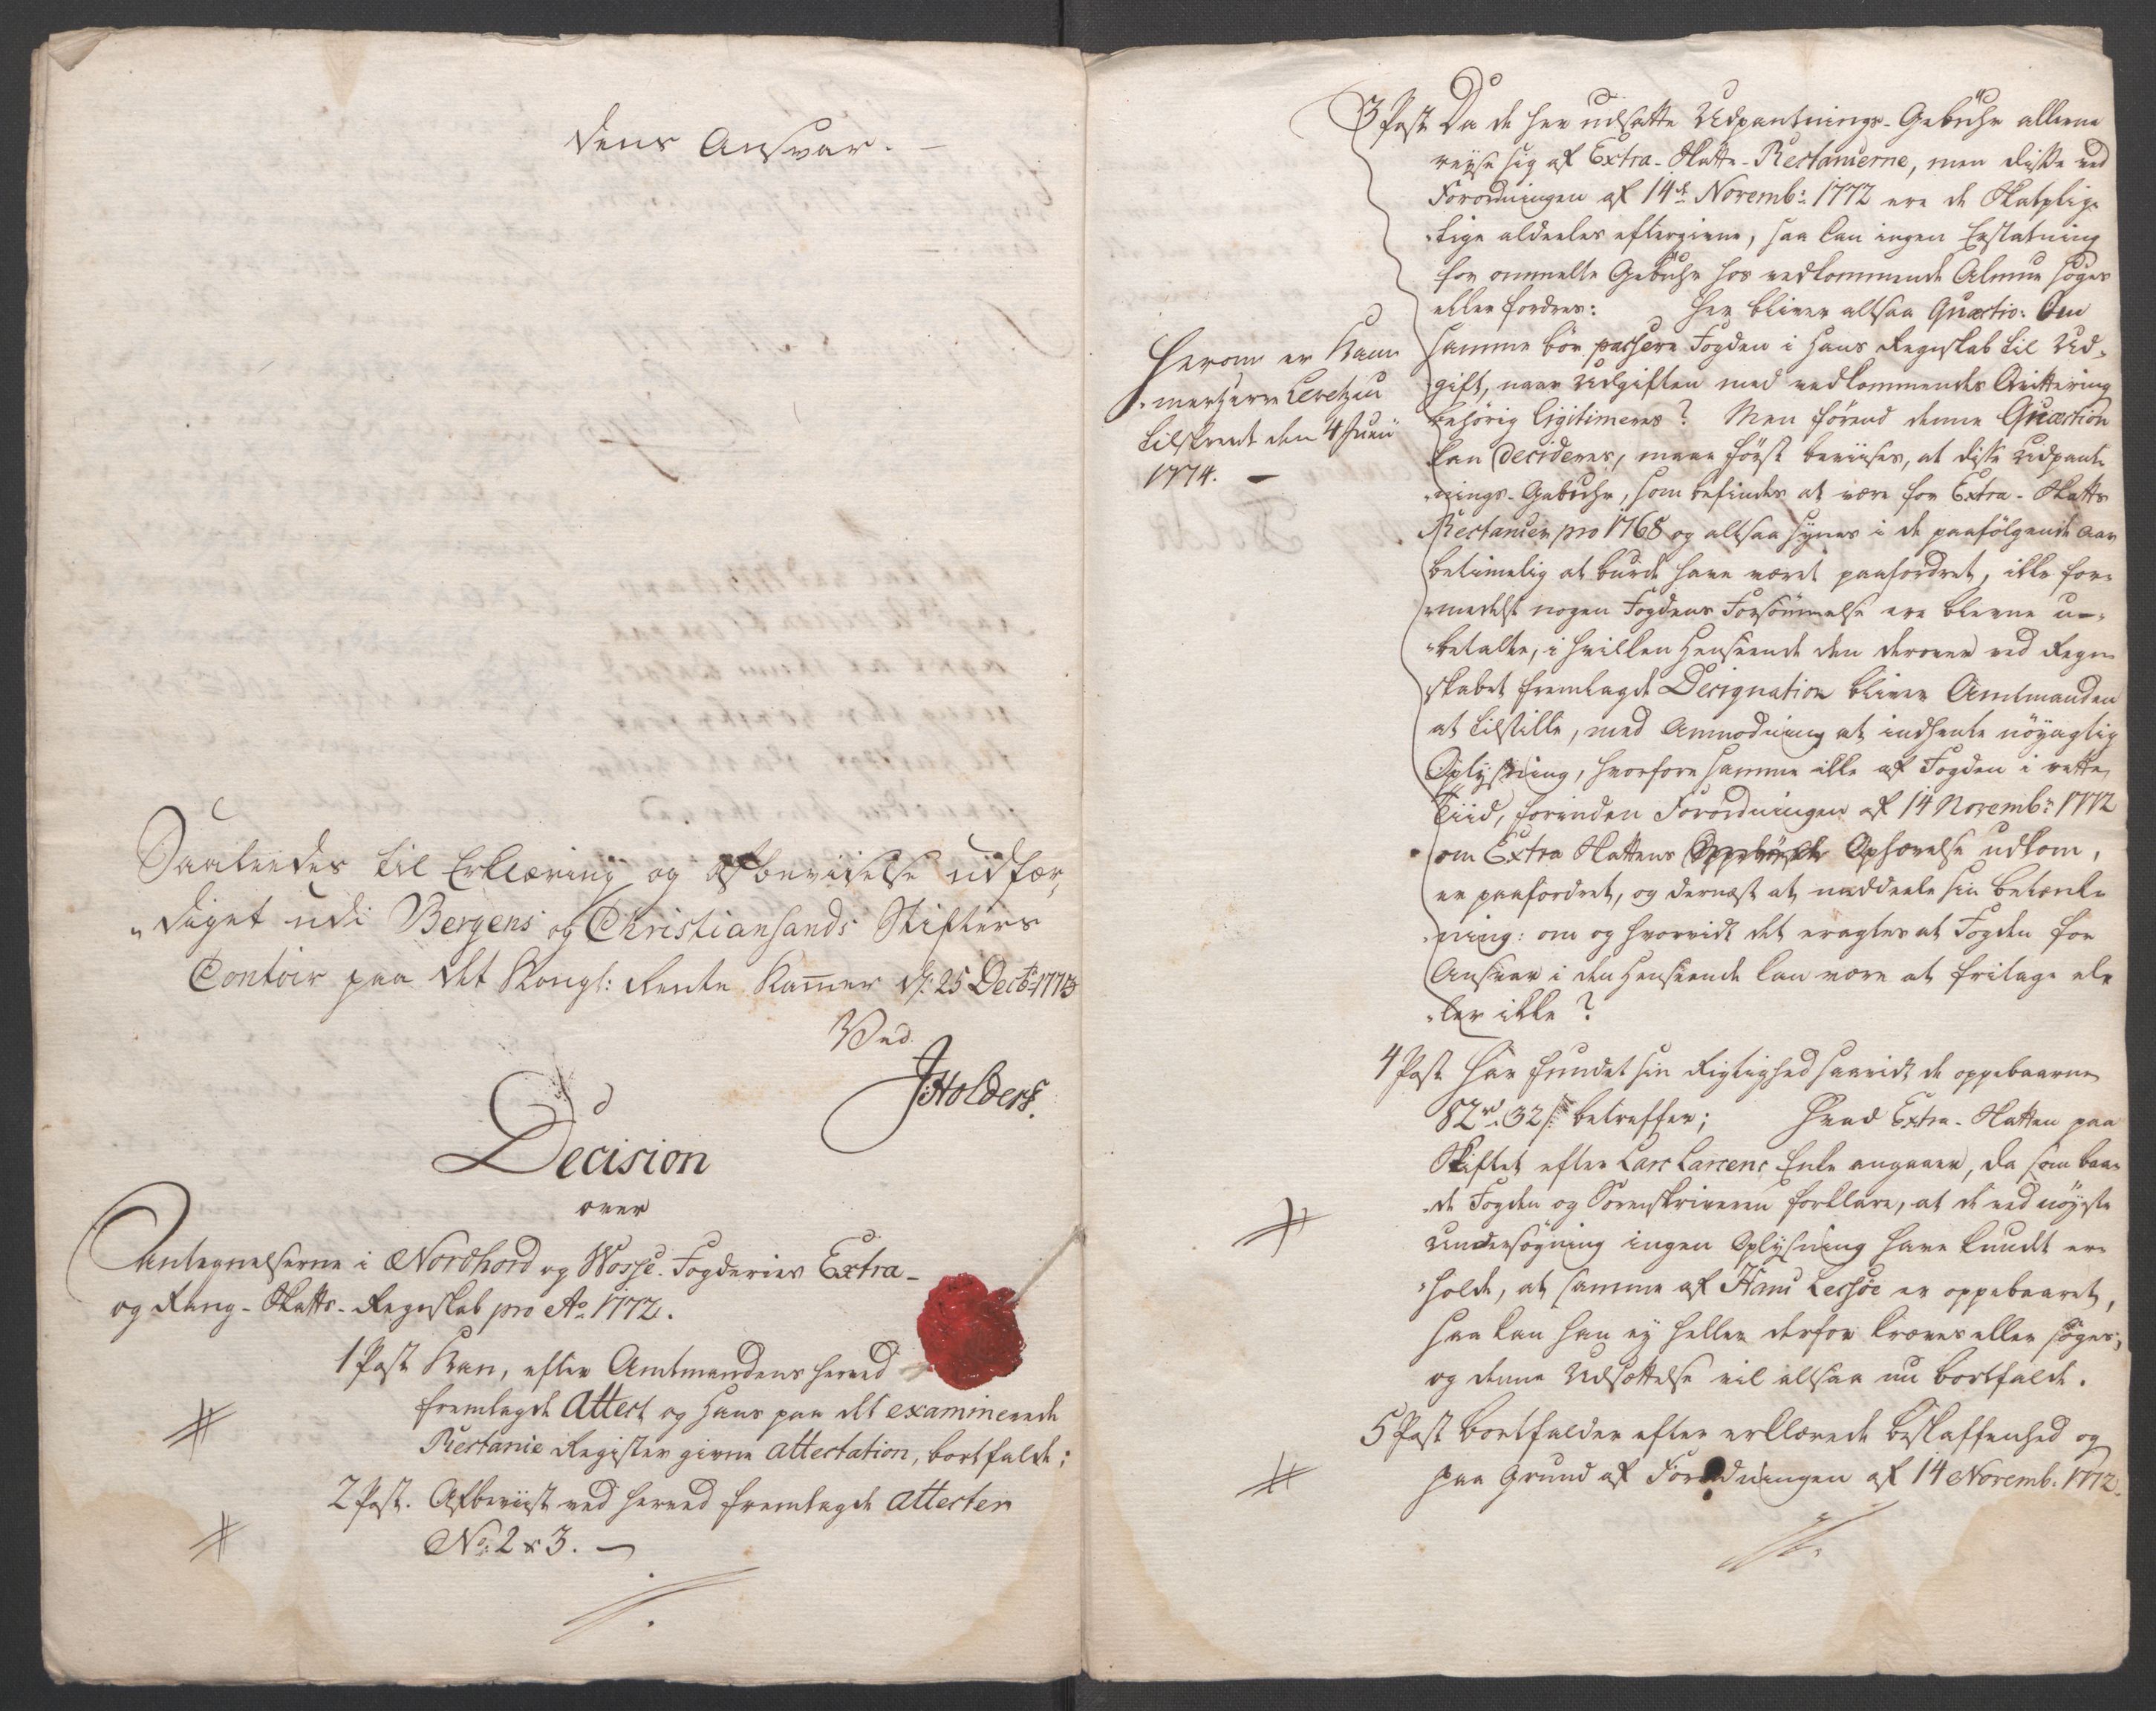 dens Ansvar. —
Saaledes til Erklæring og Afbeviiselse udfær„
„diget udi Bergens og Christiansands Stifters
Contoir paa det Kongl: Rente Kammer d: 25 Decbr: 1773
Ved
JHolders.
Decision
over
Antegnelserne i Nordhord og Wosse-Fogderies Extra-
og Rang-Skatts-Regnskab pro Ao 1772.
1 Post Kan, efter Amtmandens herved
fremlagde Attest og hans paa det examinerede
Restance Register givne attestation, bortfalde;
2 Post. Afbeviist ved herved fremlagde attester
No: 2 & 3. —
3 Post Da de her udsatte Udpantnings-Gebuhr allene
reyse sig af Extra-Skatte-Restancerne, men disse ved
Forordningen af 14de Novemb: 1772 ere de Skatplig„
„tige aldeeles eftergivne, saa kan ingen Erstatning
for ommelte Gebuhr hos vedkommende Almue søges
eller fordres: Her bliver altsaa Quæstio: Om
samme bør passere Fogden i hans Regnskab til Ud„
gift, naar Udgiften med vedkommendes Qvittering
behørig ligitimeres? Men førend denne Quæstion
kan decideres, maae først beviises, at disse Udpant„
„nings-Gebuhr, som befindes at være for Extra-Skatts
Restancer pro 1768 og altsaa synes i de paafølgende Aar
betimelig at burde have været paafordret, ikke for„
„medelst nogen Fogdens Forsømmelse ere blevne u„
„betalte, i hvilken Henseende den derover ved Regn„
skabet fremlagde Designation bliver Amtmanden
at tilstille, med Anmodning at indhente nøyagtig
Oplysning, hvorfore samme ikke af Fogden i rette
Tiid, forinden Forordningen af 14 Novemb: 1772
om Extra Skattens Ophævelse udkom,
er paafordret, og dernæst at meddeele sin betænk„
„ning: om og hvorvidt det eragtes at Fogden for
Ansvar i den Henseende kan være at fritage el„
„ler ikke?
Herom er Kam„
„merherre Levetzau
tilskrevet den 4 Junii
1774. —
4 Post Har fundet sin Rigtighed saavidt de oppebaarne
82 rd 32 s: betreffer; Hvad Extra-Skatten paa
Skiftet efter Lars Larsens Enke angaaer, da som baa„
„de Fogden og Sorenskriveren forklare, at de ved nøyeste
Undersøgning ingen Oplysning have kundt er„
„holde, at samme af Hans Lessøe er oppebaaret,
saa kan han ey heller derfor kræves eller søges;
og denne Udsættelse vil altsaa nu bortfalde.
5 Post bortfalder efter erklærede beskaffenhed og
paa Grund af Forordningen af 14 Novemb. 1772.